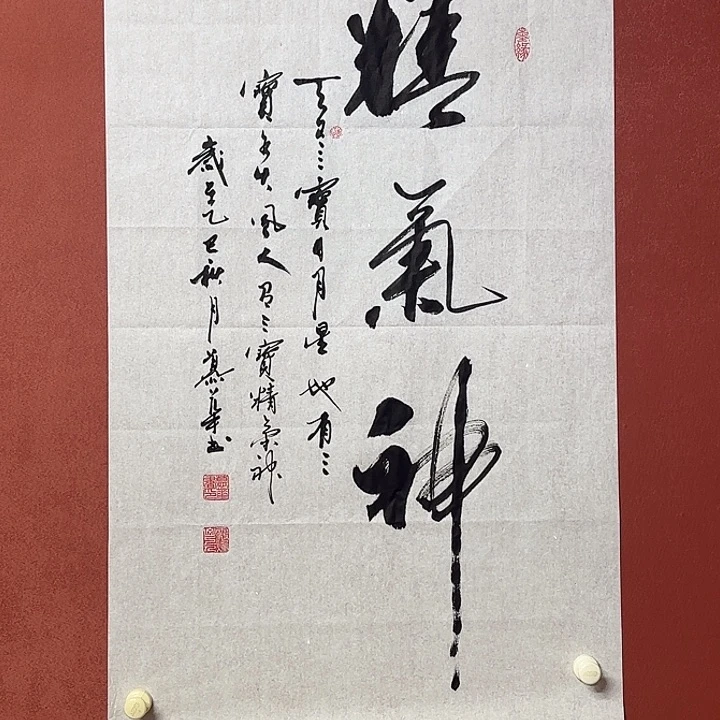 精氣神
天有三寶日月星地有三
寶水火風人有三寶精氣神
歲至乙巳秋月
書